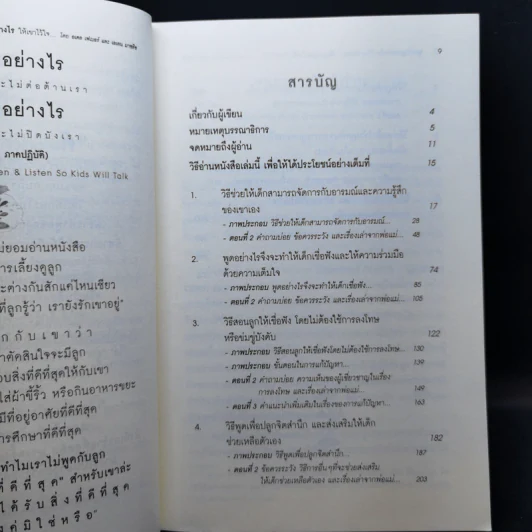 างไร ให้เขาไว้ใจ... โดย
อย่างไร
ะไม่ต่อต้านเรา
อย่างไร
ะไม่ปิดบังเรา
ภาคปฏิบัติ)
en & Listen So Kids Will Talk
ม่ยอมอ่านหนังสือ
การเลี้ยงดูลูก
ะต่างกันสักแค่ไหนเชียว
ที่ลูกรู้ว่า เรายังรักเขาอยู่"
ก กับเขาว่า
าตัดสินใจจะมีลูก
อบสิ่งที่ดีที่สุดให้กับเขา
ใส่ผ้าขี้ริ้ว หรือกินอาหารขยะ
มีที่อยู่อาศัยที่ดีที่สุด
การศึกษาที่ดีที่สุด
ทำไมเราไม่พูดกับลูก
ที่ดีที่สุด" สำหรับเขาล่ะ
ได้รับสิ่งที่ดีที่สุด
มิใช่หรือ"
9
สารบัญ
เกี่ยวกับผู้เขียน 4
หมายเหตุบรรณาธิการ 5
จดหมายถึงผู้อ่าน 11
วิธีอ่านหนังสือเล่มนี้ เพื่อให้ได้ประโยชน์อย่างเต็มที่ 15
1. วิธีช่วยให้เด็กสามารถจัดการกับอารมณ์และความรู้สึก
ของเขาเอง 17
- ภาพประกอบ วิธีช่วยให้เด็กสามารถจัดการกับอารมณ์... 28
- ตอนที่ 2 คำถามบ่อย ข้อควรระวัง และเรื่องเล่าจากพ่อแม่... 48
2. พูดอย่างไรจึงจะทำให้เด็กเชื่อฟังและให้ความร่วมมือ
ด้วยความเต็มใจ 74
- ภาพประกอบ พูดอย่างไรจึงจะทำให้เด็กเชื่อฟัง... 85
- ตอนที่ 2 คำถามบ่อย ข้อควรระวัง และเรื่องเล่าจากพ่อแม่... 105
3. วิธีสอนลูกให้เชื่อฟัง โดยไม่ต้องใช้การลงโทษ
หรือข่มขู่บังคับ 122
- ภาพประกอบ วิธีสอนลูกให้เชื่อฟังโดยไม่ต้องใช้การลงโทษ... 130
- ภาพประกอบ ขั้นตอนในการแก้ปัญหา... 139
- ตอนที่ 2 คำถามบ่อย ความเห็นของผู้เชี่ยวชาญในเรื่อง
การลงโทษ และเรื่องเล่าจากพ่อแม่... 149
- ตอนที่ 3 คำแนะนำเพิ่มเติมในเรื่องของการแก้ปัญหา... 163
4. วิธีพูดเพื่อปลูกจิตสำนึก และส่งเสริมให้เด็ก
ช่วยเหลือตัวเอง 182
- ภาพประกอบ วิธีพูดเพื่อปลูกจิตสำนึก... 187
- ตอนที่ 2 ข้อควรระวัง วิธีการอื่นๆที่จะช่วยส่งเสริม
ให้เด็กช่วยเหลือตัวเอง และเรื่องเล่าจากพ่อแม่... 203